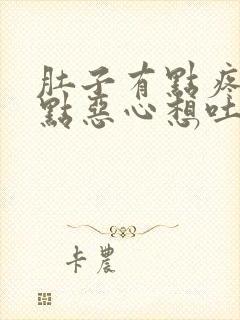 肚子有點疼
點惡心想吐,
卡農